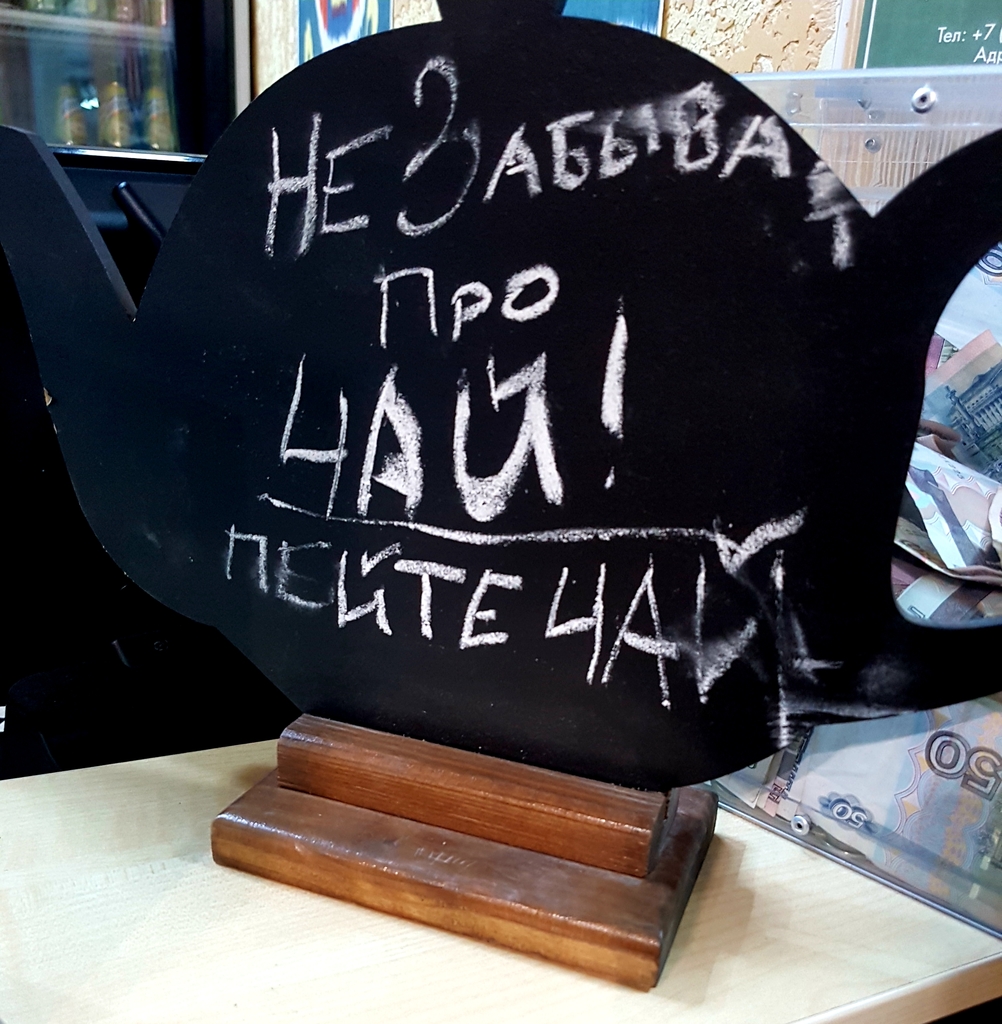 Тел: +7 (
Адр
НЕ ЗАБЫВАТ
ПРО
ЧАЙ!
ПЕЙТЕ ЧАЙ
50
50